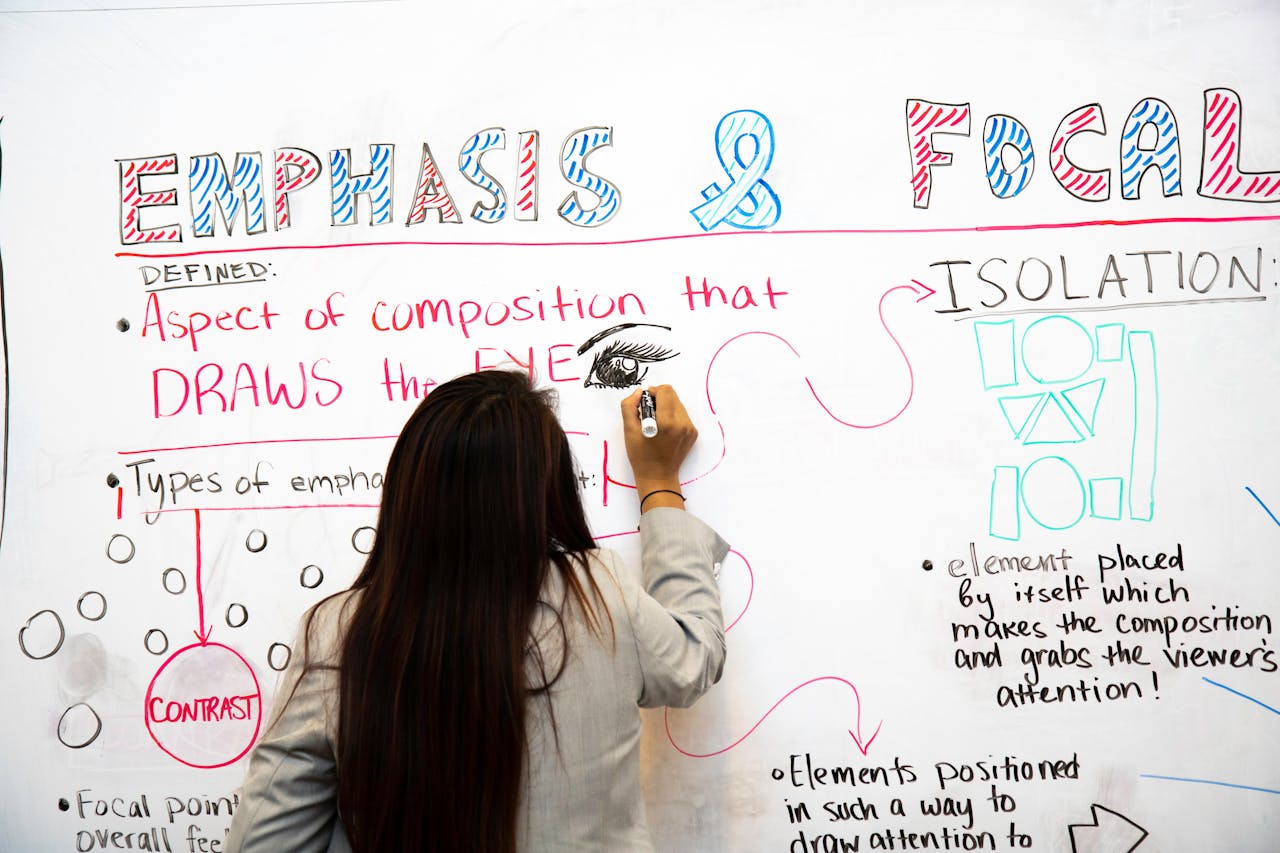 EMPHASIS & FOCAL
DEFINED:
• Aspect of composition that
DRAWS the EYE
• Types of empha t:
CONTRAST
• Focal poin
overall fee
ISOLATION:
• element placed
by itself which
makes the composition
and grabs the viewer's
attention!
• Elements positioned
in such a way to
draw attention to